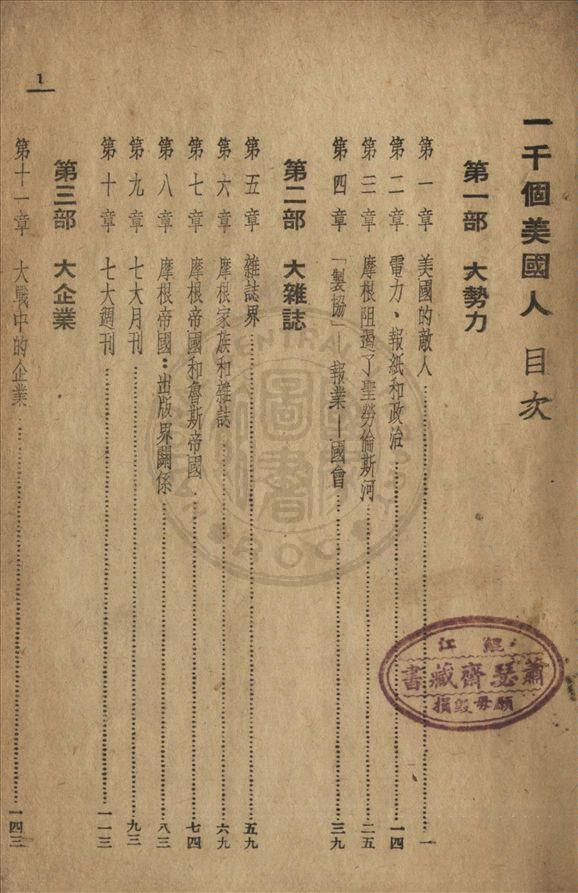 一千個美國人 目次
第一部 大勢力
第一章 美國的敵人……一
第二章 電力、報紙和政治……一四
第三章 摩根阻遏了聖勞倫斯河……二五
第四章 「製協」—報業—國會……三九
第二部 大雜誌
第五章 雜誌界……五九
第六章 摩根家族和雜誌……六九
第七章 摩根帝國和魯斯帝國……七四
第八章 摩根帝國：出版界關係……八三
第九章 七大月刊……九三
第十章 七大週刊……一一三
第三部 大企業
第十一章 大戰中的企業……一四三
1
江
蕭瑟齋藏書
願毋毀損
圖書